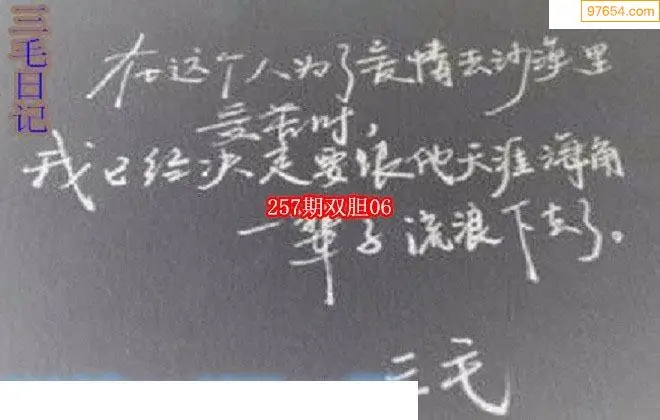 97654.com
三毛日记
在这个人为了爱情去沙漠里
受苦时，
我已经决定要跟他天涯海角
257期双胆06
一辈子流浪下去了。
三毛